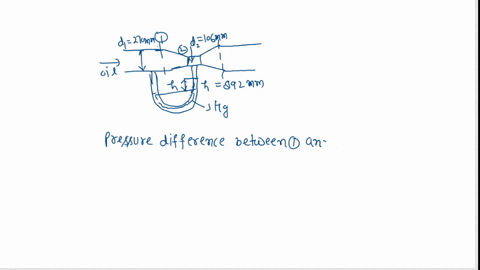 d₁=270mm ① d₂=106mm
②
oil h h = 892 mm
Hg
Pressure difference between ① an